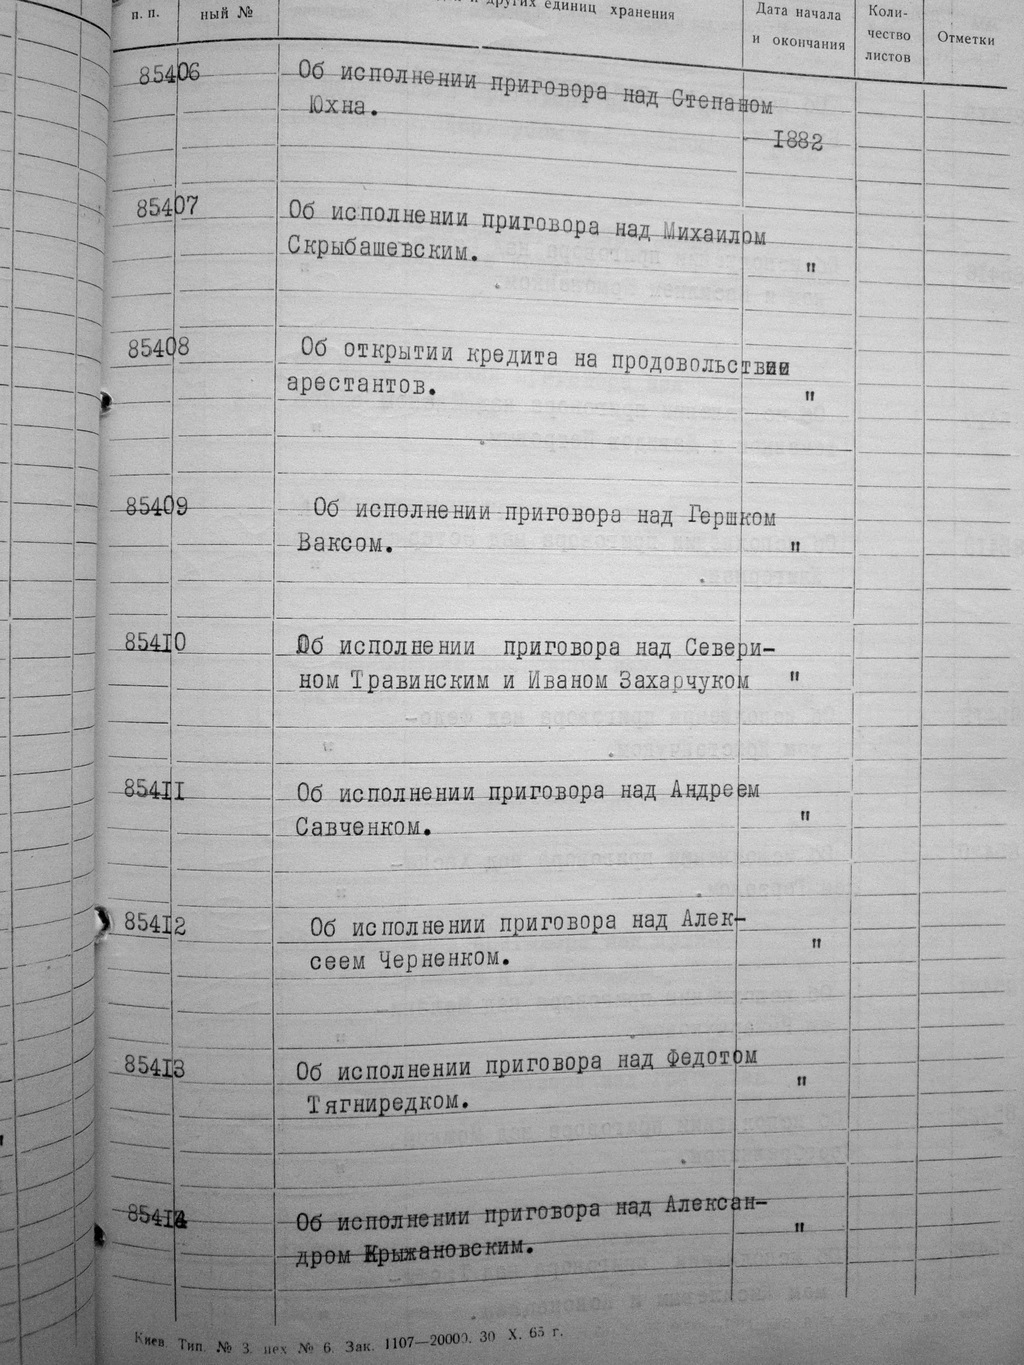 п. п.
ный №
и других единиц хранения
Дата начала
и окончания
Коли-
чество
листов
Отметки
85406 Об исполнении приговора над Степаном
Юхна.
1882
85407 Об исполнении приговора над Михаилом
Скрыбашевским. "
85408 Об открытии кредита на продовольствии
арестантов. "
85409 Об исполнении приговора над Гершком
Ваксом. "
85410 Об исполнении приговора над Севери-
ном Травинским и Иваном Захарчуком "
85411 Об исполнении приговора над Андреем
Савченком. "
85412 Об исполнении приговора над Алек-
сеем Черненком. "
85413 Об исполнении приговора над Федотом
Тягниредком. "
85414 Об исполнении приговора над Алексан-
дром Крыжановским. "
Киев Тип. № 3. цех № 6. Зак. 1107—20000. 30 X. 65 г.